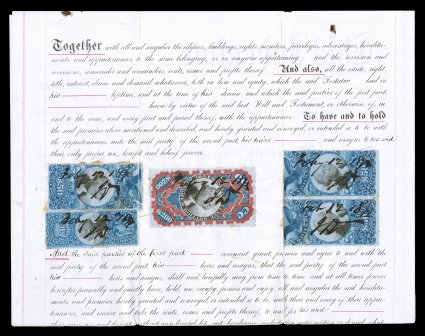 Together with all and singular the edifices, buildings, rights, members, privileges, advantages, heredita-
ments and appurtenances to the same belonging, or in anywise appertaining and the reversion and
reversions, remainder and remainders, rents, issues and profits thereof. And also, all the estate, right,
title, interest, claim and demand whatsoever, both in law and equity, which the said Testator had in
his lifetime, and at the time of his decease, and which the said parties of the first part
have by virtue of the said last Will and Testament, or otherwise, of, in,
and to the same, and every part and parcel thereof, with the appurtenances. To have and to hold
the said premises above mentioned and described, and hereby granted and conveyed, or intended so to be, with
the appurtenances, unto the said party of the second part his heirs and assigns to his and
their only proper use, benefit and behoof forever.
And the said parties of the first part covenant grant promise and agree to and with the
said party of the second part his heirs and assigns, that the said party of the second part
his heirs and assigns, shall and lawfully may from time to time and at all times forever
hereafter peaceably and quietly have, hold, use, occupy, possess and enjoy, all and singular the said heredita-
ments and premises hereby granted and conveyed, or intended so to be, with their and every of their appur-
tenances, and receive and take the rents, issues and profits thereof, to and for his own